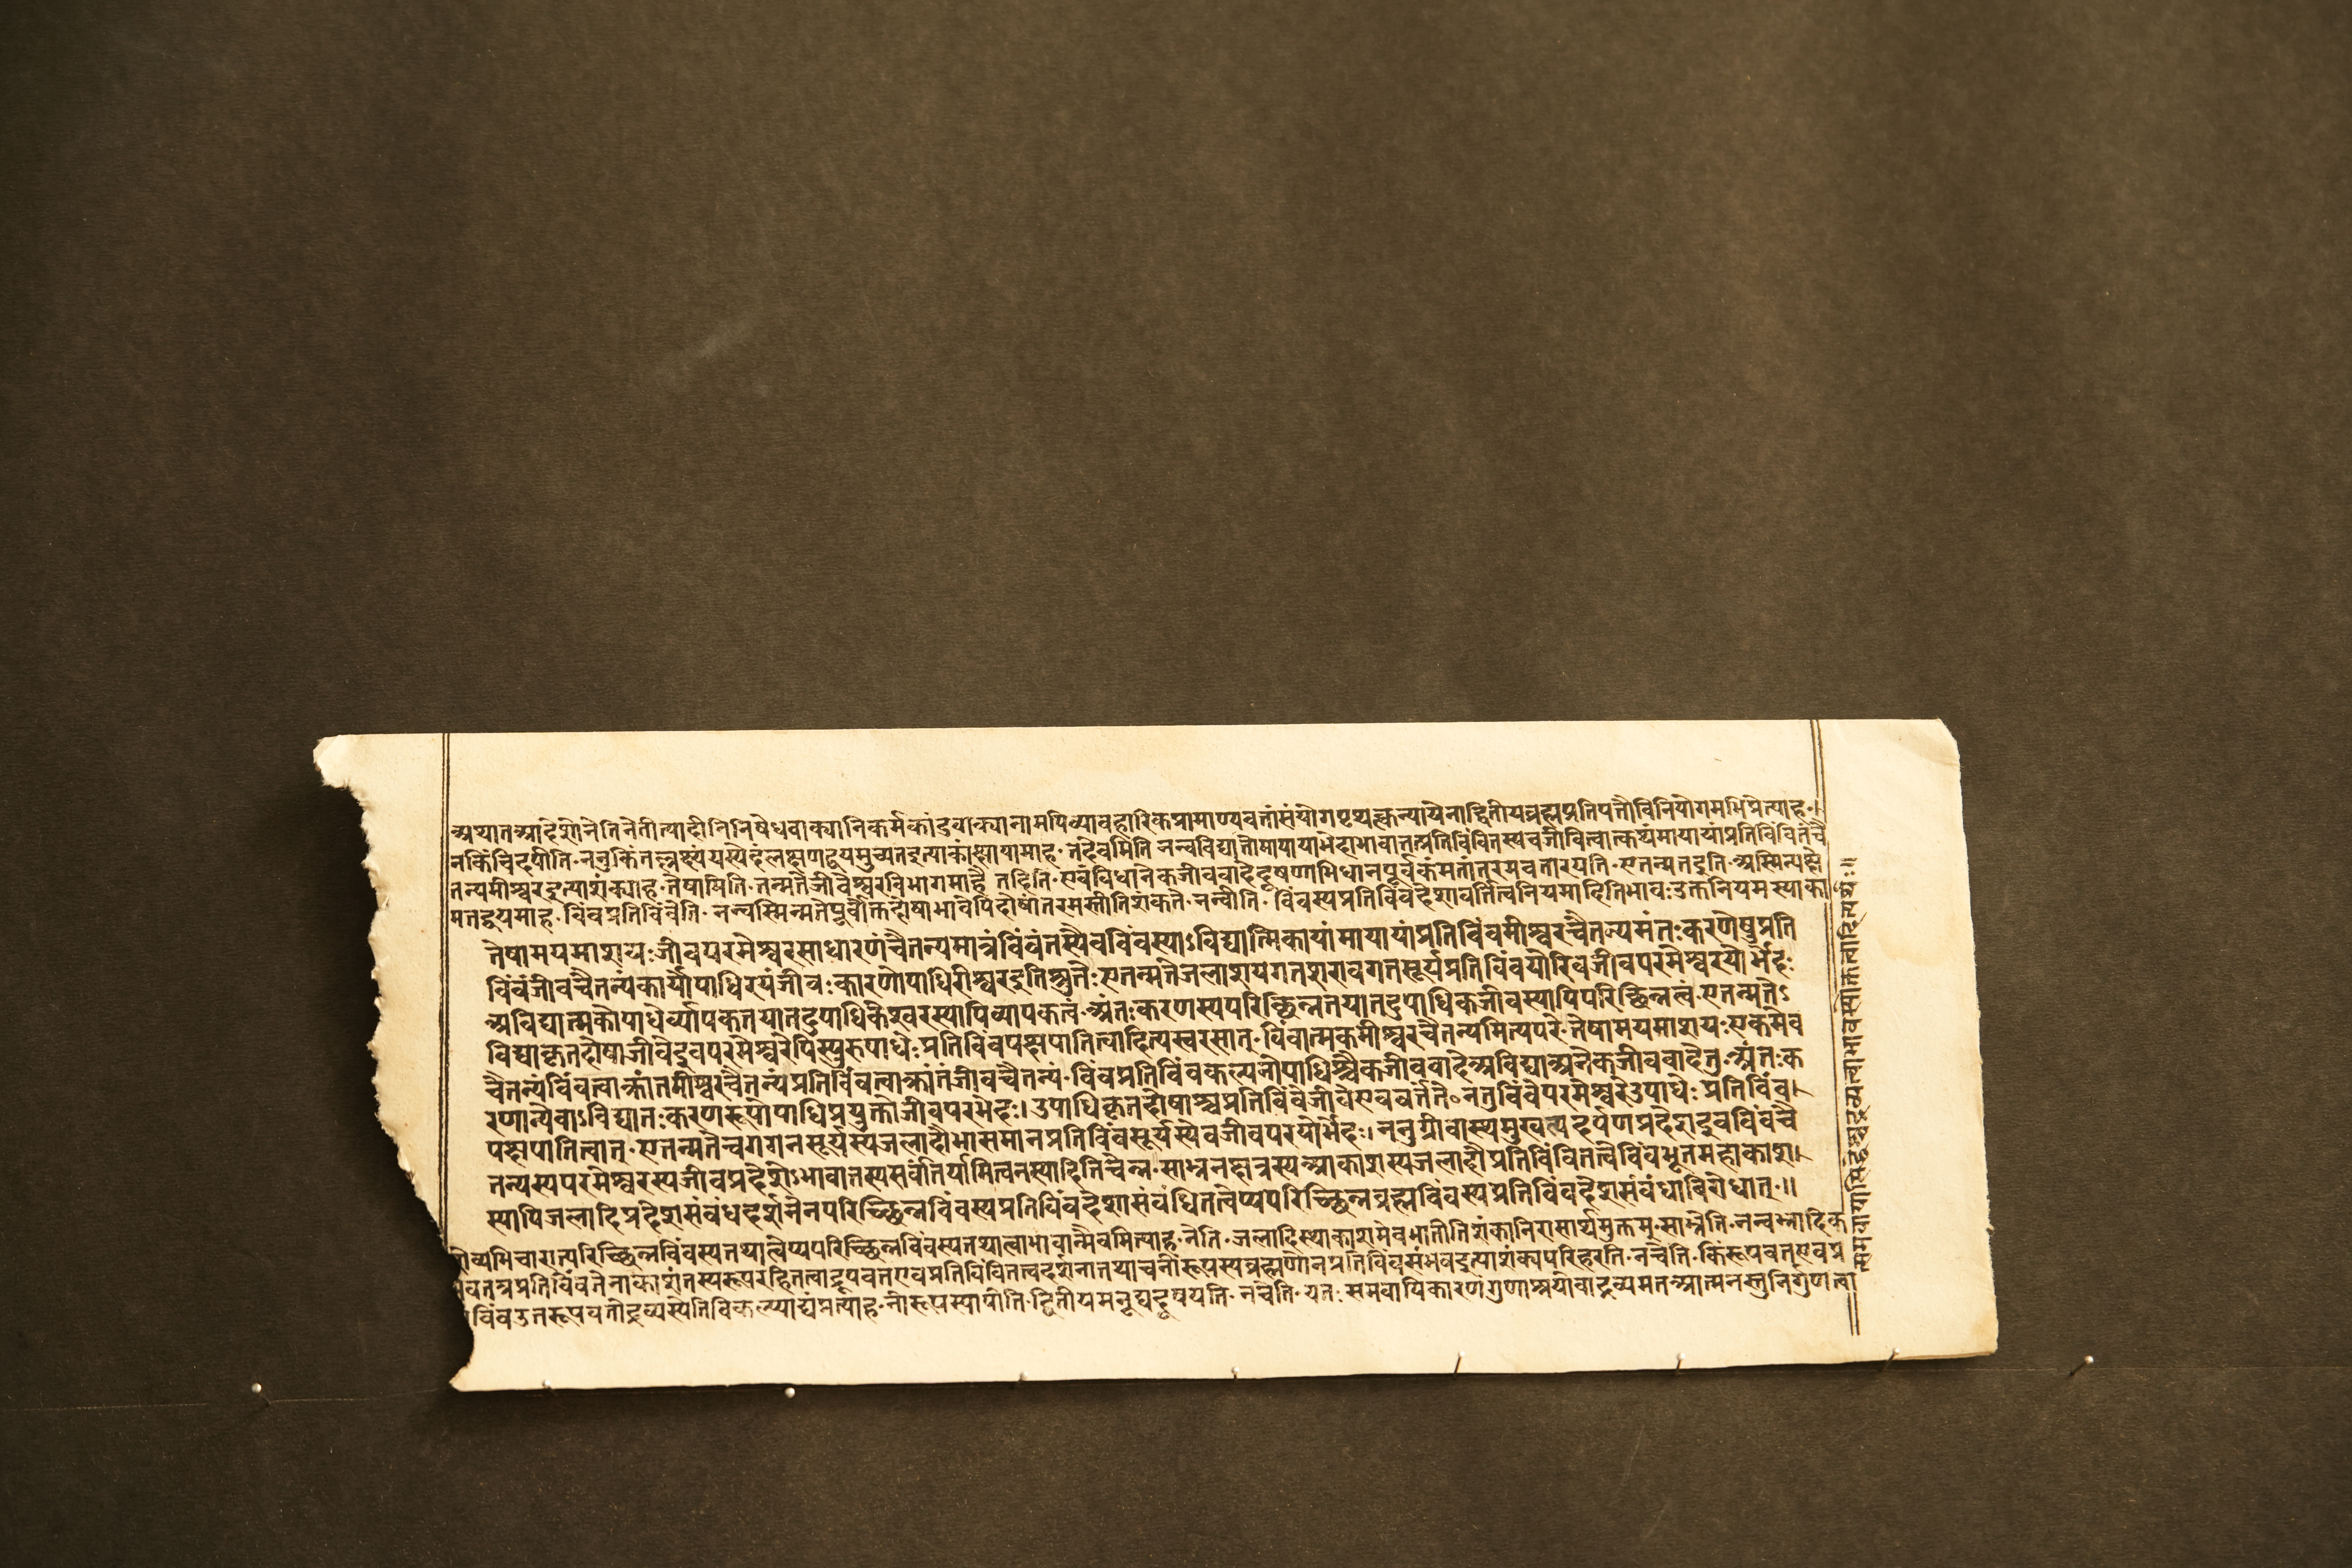 अथातआदेशोनेतिनेतीत्यादीनिनिषेधवाक्यानिकर्मकांडवाक्यानामपिव्यावहारिकप्रामाण्यवतांसंयोगपृथक्त्कन्यायेनाद्वितीयब्रह्मप्रतिपत्तौविनियोगमभिप्रेत्याह॰।
नकिंचिदपीति॰ननुकिंतल्लक्ष्यंयस्येदंलक्षणद्वयमुच्यतइत्याकांक्षायामाह॰तदेवमिति नन्वविद्यातोमायायाभेदाभावातत्प्रतिविंबितस्यैवजीवत्वात्कथंमायायांप्रतिविंबितंचै
तन्यमीश्वरइत्याशंक्याह॰तेषामिति॰तन्मतेजीवेश्वरविभागमाहै तदिति॰एवंविधानेकजीववादेदूषणाभिधानपूर्वकंमतांतरमवतारयति॰एतन्मतइति॰अस्मिन्पक्षे
मतद्वयमाह॰विंबप्रतिविंबेति॰नन्वस्मिन्मतेपूर्वोक्तदोषाभावेपिदोषांतरमस्तीतिशंकते॰नन्वीति॰विंबस्यप्रतिविंबदेशावर्तित्वनियमादितिभावः॰उक्तनियमस्याका
तेषामयमाशयः॰जीवपरमेश्वरसाधारणंचैतन्यमात्रंविंबंतस्यैवविंबस्याऽविद्यात्मिकायांमायायांप्रतिविंबमीश्वरचैतन्यमंतःकरणेषुप्रति
विंबंजीवचैतन्यंकार्योपाधिरयंजीवःकारणोपाधिरीश्वरइतिश्रुतेः॰एतन्मतेजलाशयगतशरावगतसूर्यप्रतिविंबयोरिवजीवपरमेश्वरयोर्भेदः
अविद्यात्मकोपाधेर्व्यापकतयातदुपाधिकेश्वरस्यापिव्यापकत्वं॰अंतःकरणस्यपरिच्छिन्नतयातदुपाधिकजीवस्यापिपरिच्छिन्नत्वं॰एतन्मतेऽ
विद्याकृतदोषाजीवेइवपरमेश्वरेपिस्युरुपाधेः॰प्रतिविंबपक्षपातित्वादित्यस्वरसात्॰विंबात्मकमीश्वरचैतन्यमित्यपरे॰तेषामयमाशयः॰एकमेव
चैतन्यंविंबत्वाक्रांतमीश्वरचैतन्यंप्रतिविंबत्वाक्रांतंजीवचैतन्यं॰विंबप्रतिविंबकल्पनोपाधिश्चैकजीववादेअविद्याअनेकजीववादेतु॰अंतःक
रणान्येवाऽविद्यांतःकरणरूपोपाधिप्रयुक्तोजीवपरभेदः।उपाधिकृतदोषाश्चप्रतिविंबेजीवेएववर्त्तंते॰नतुविंबेपरमेश्वरेउपाधेः॰प्रतिविंब।
पक्षपातित्वात्॰एतन्मतेचगगनसूर्यस्यजलादौभासमानप्रतिविंबसूर्यस्येवजीवपरयोर्भेदः।ननुग्रीवास्थमुखस्यदर्पणप्रदेशइवविंबचै
तन्यस्यपरमेश्वरस्यजीवप्रदेशेऽभावात्तस्यसर्वांतर्यामित्वंनस्यादितिचेन्न॰साभ्रनक्षत्रस्यआकाशस्यजलादौप्रतिविंबितत्वेविंबभूतमहाकाश।
स्यापिजलादिप्रदेशसंबंधदर्शनेनपरिच्छिन्नविंबस्यप्रतिविंबदेशासंबंधितत्वेप्यपरिच्छिन्नब्रह्मविंबस्यप्रतिविंबदेशसंबंधाविरोधात्॥
व्यभिचारात्परिच्छिन्नविंबस्यतथात्वेप्यपरिच्छिन्नविंबस्यतथात्वाभावान्मैवमित्याह॰नेति॰जलादिस्थाकाशमेवभातीतिशंकानिरासार्थमुक्तम्॰साभ्रेति॰नन्वभ्रादिक
वतत्रप्रतिविंबतेनाकाशंतस्यरूपरहितत्वाद्रूपवतएवप्रतिविंबितत्वदर्शनात्तथाचनीरूपस्यब्रह्मणोनप्रतिविंबसंभवइत्याशंक्यपरिहरति॰नचेति॰किंरूपवतएवप्र
विंबउतरूपवतोद्रव्यस्येतिविकल्प्याद्यंप्रत्याह॰नीरूपस्यापीति॰द्वितीयमनूद्यदूषयति॰नचेति॰यतः॰समवायिकारणंगुणाश्रयोवाद्रव्यमतआत्मनस्तुनिर्गुणत्वा